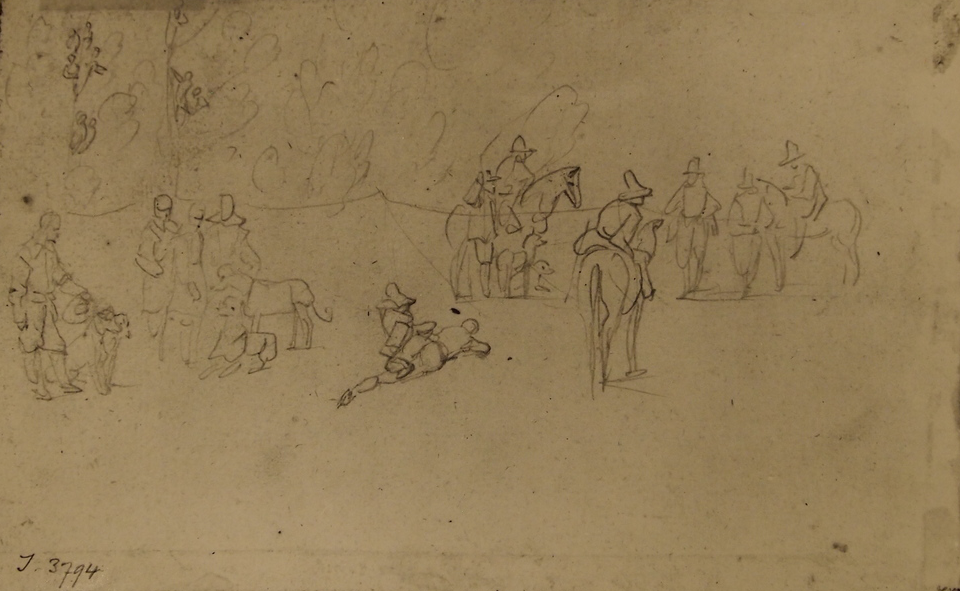 J. 3794